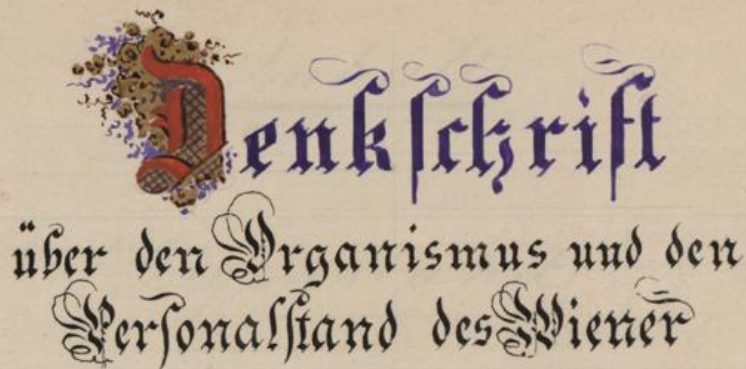 Denkſchrift
über den Organismus und den
Perſonalſtand des Wiener